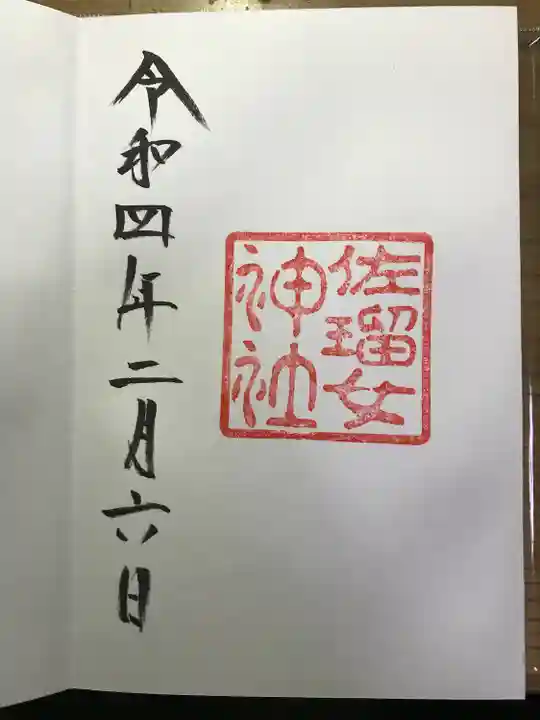 佐瑠女
神社
令和四年二月六日